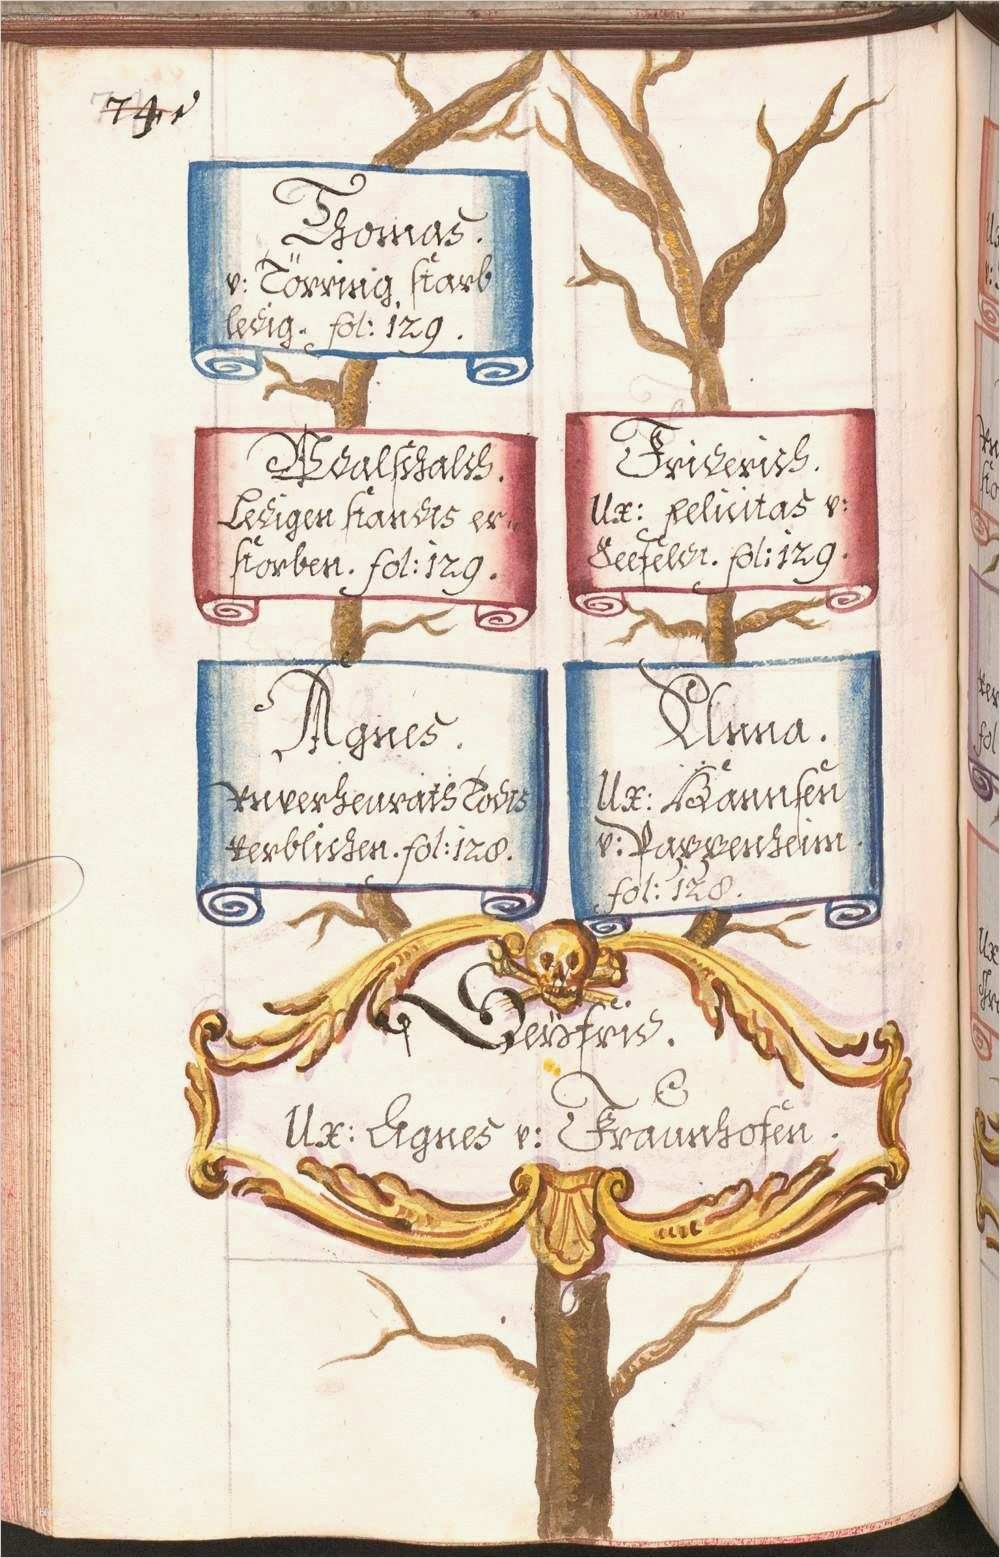 741
Thomas.
v: Törring starb
ledig. fol: 129.
Ledigen standts er=
storben. fol: 129.
Friderich.
Ux: Felicitas v:
Seefeldt. fol: 129.
Agnes.
vnverheurath Todts
verblichen. fol: 128.
Anna.
Ux: Hannsen
v: Pappenheim.
fol: 128.
Seyfrid.
Ux: Agnes v: Fraunhofen.